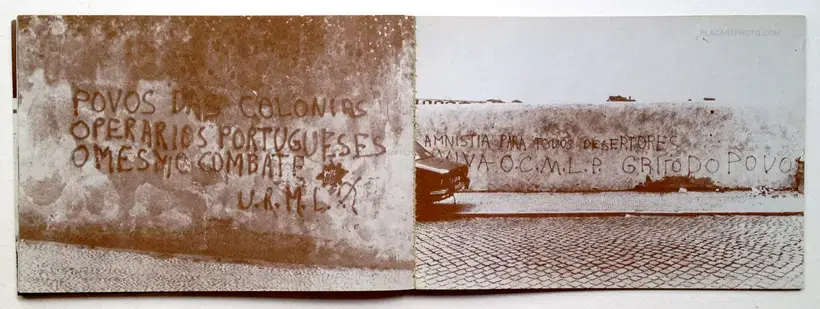 POVOS DAS COLONIAS
OPERARIOS PORTUGUESES
O MESMO COMBATE
U.R.M.L.
AMNISTIA PARA TODOS DESERTORES
VIVA O.C.M.L.P. GRITO DO POVO
PLACARTPHOTO.COM